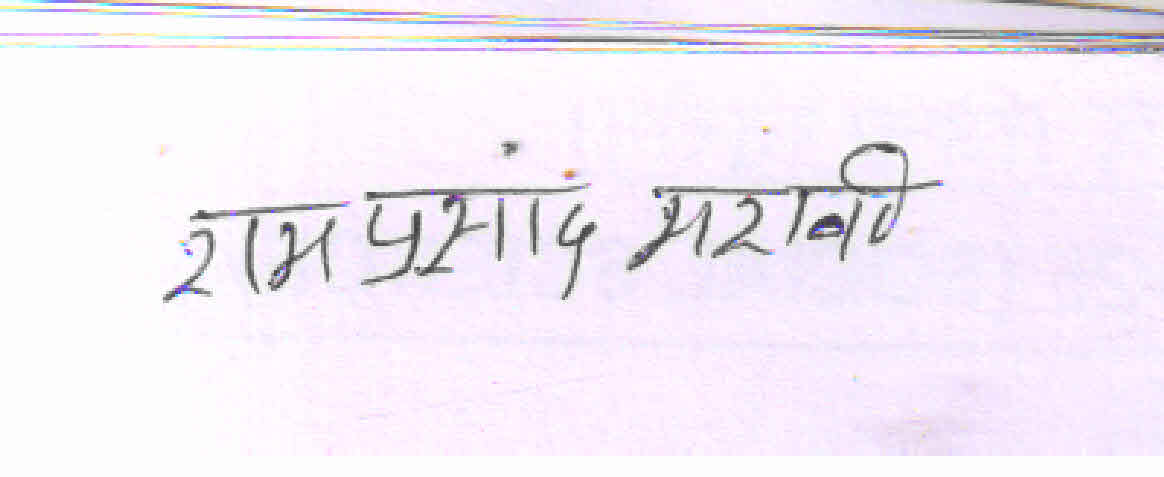 राम प्रसांद मरावी